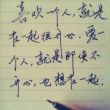 喜欢一个人，就是
在一起很开心，爱一
个人，就是即使不
开心，也想在一
起。